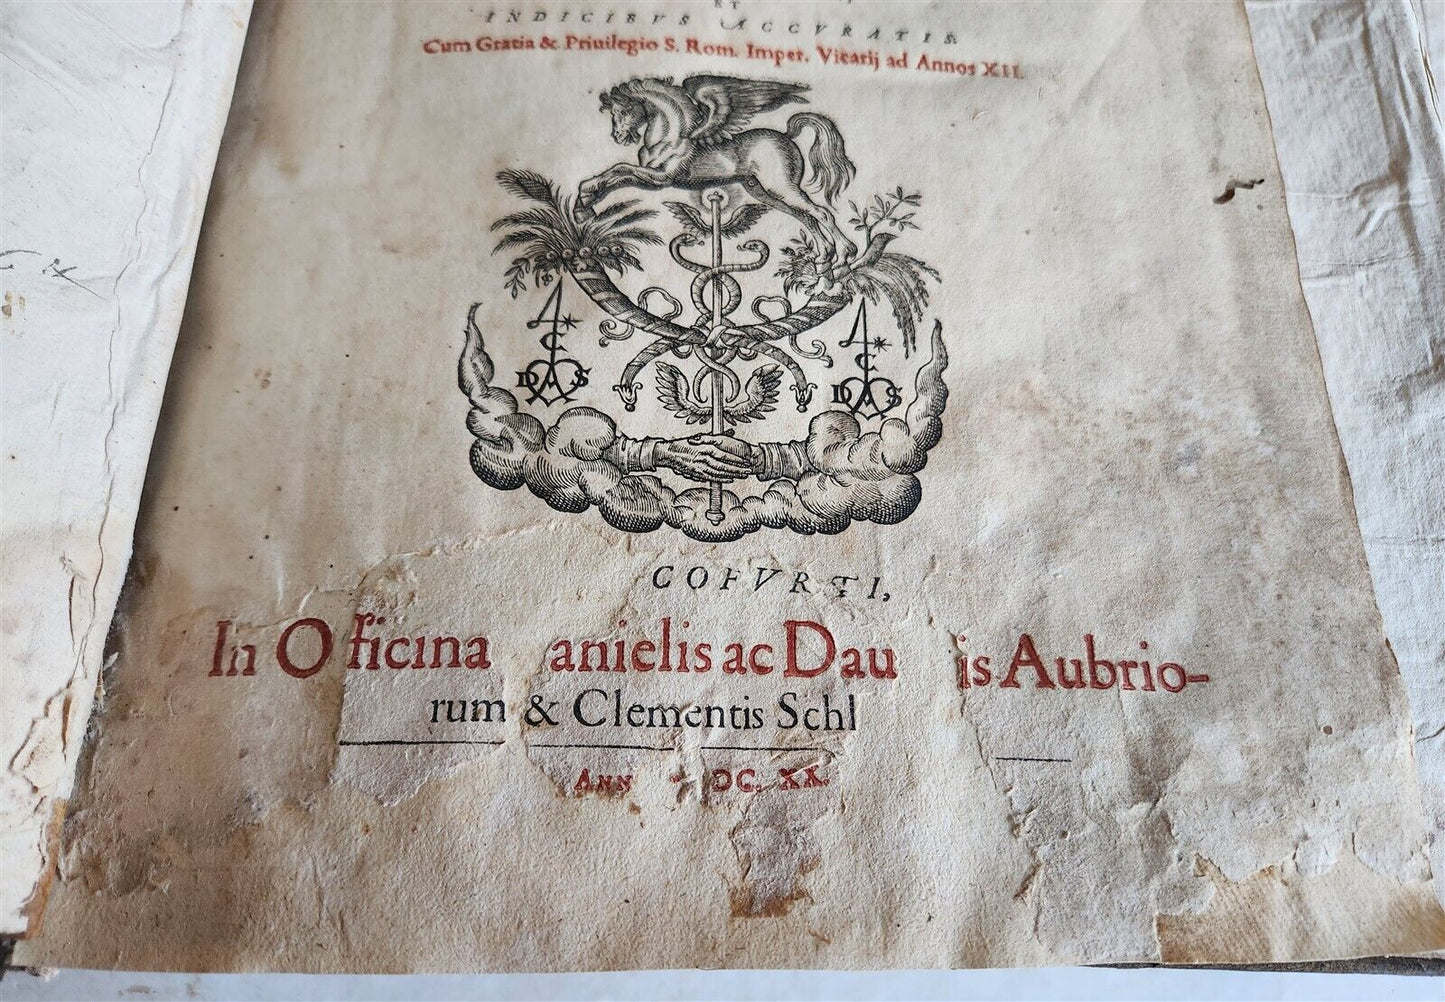 ET
INDICIBVS ACCVRATIS.
Cum Gratia & Priuilegio S. Rom. Imper. Vicarij ad Annos XII.
C C
DAS DAS
COFVRTI,
In Officina anielis ac Dau is Aubrio-
rum & Clementis Schl
ANN DC. XX.